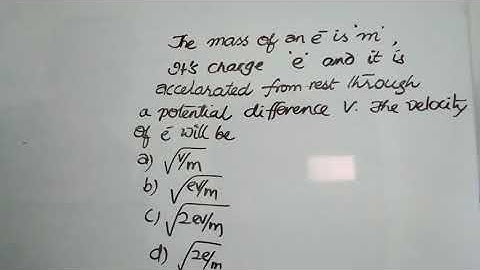 The mass of an ē is 'm',
It's charge 'e' and it is
accelarated from rest through
a potential difference V. The velocity
of ē will be
a) √V/m
b) √eV/m
c) √2eV/m
d) √2e/m